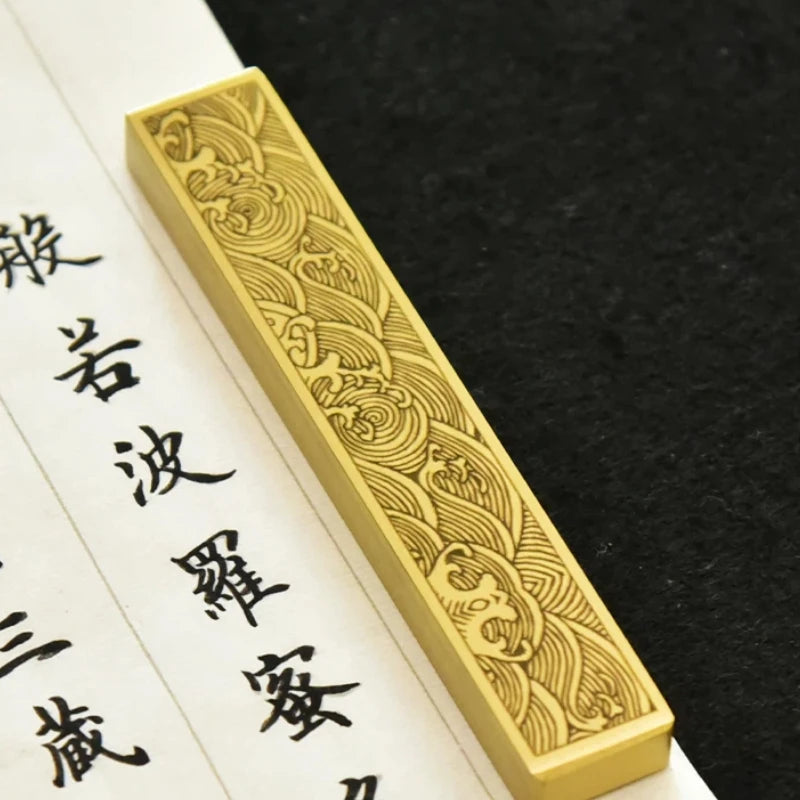 般若波羅蜜
三藏